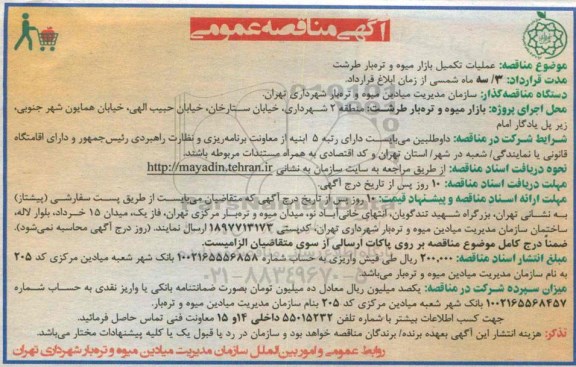 آگهی مناقصه عمومی
موضوع مناقصه: عملیات تکمیل بازار میوه و تره‌بار طرشت
مدت قرارداد: ۳/ سه ماه شمسی از زمان ابلاغ قرارداد.
دستگاه مناقصه‌گذار: سازمان مدیریت میادین میوه و تره‌بار شهرداری تهران.
محل اجرای پروژه: بازار میوه و تره‌بار طرشت: منطقه ۲ شهرداری، خیابان ستارخان، خیابان حبیب الهی، خیابان همایون شهر جنوبی،
زیر پل یادگار امام
شرایط شرکت در مناقصه: داوطلبین می‌بایست دارای رتبه ۵ ابنیه از معاونت برنامه‌ریزی و نظارت راهبردی رئیس‌جمهور و دارای اقامتگاه
قانونی یا نمایندگی/ شعبه در شهر/ استان تهران و کد اقتصادی به همراه مستندات مربوطه باشند.
نحوه دریافت اسناد مناقصه: از طریق مراجعه به سایت سازمان به نشانی http://mayadin.tehran.ir
مهلت دریافت اسناد مناقصه: ۱۰ روز پس از تاریخ درج آگهی
مهلت ارائه اسناد مناقصه و پیشنهاد قیمت: ۱۰ روز پس از تاریخ درج آگهی که متقاضیان می‌بایست از طریق پست سفارشی (پیشتاز)
به نشانی تهران، بزرگراه شهید تندگویان، انتهای خانی‌آباد نو، میدان میوه و تره‌بار مرکزی تهران، فاز یک، میدان ۱۵ خرداد، بلوار لاله،
ساختمان سازمان مدیریت میادین میوه و تره‌بار شهرداری تهران، کدپستی ۱۸۹۷۷۱۳۱۷۳ ارسال نمایند. (روز درج آگهی محاسبه نمی‌شود).
ضمناً درج کامل موضوع مناقصه بر روی پاکات ارسالی از سوی متقاضیان الزامیست.
مبلغ انتشار اسناد مناقصه: ۲۰۰,۰۰۰ ریال طی فیش واریزی به حساب شماره ۱۰۰۲۱۶۵۵۵۶۸۵۸ بانک شهر شعبه میادین مرکزی کد ۲۰۵
به نام سازمان مدیریت میادین میوه و تره‌بار می‌باشد.
میزان سپرده شرکت در مناقصه: یکصد میلیون ریال معادل ده میلیون تومان بصورت ضمانتنامه بانکی یا واریز نقدی به حساب شماره
۱۰۰۲۱۶۵۵۶۸۴۵۷ بانک شهر شعبه میادین مرکزی کد ۲۰۵ بنام سازمان مدیریت میادین میوه و تره‌بار.
جهت کسب اطلاعات بیشتر با شماره تلفن ۵۵۰۱۵۲۳۲ داخلی ۱۴ و ۱۵ معاونت فنی تماس حاصل فرمائید.
تذکر: هزینه انتشار این آگهی بعهده برنده/ برندگان مناقصه خواهد بود و سازمان در رد یا قبول یک یا کلیه پیشنهادات مختار می‌باشد.
روابط عمومی و امور بین‌الملل سازمان مدیریت میادین میوه و تره‌بار شهرداری تهران
۰۲۱-۸۸۳۴۹۶۷۰